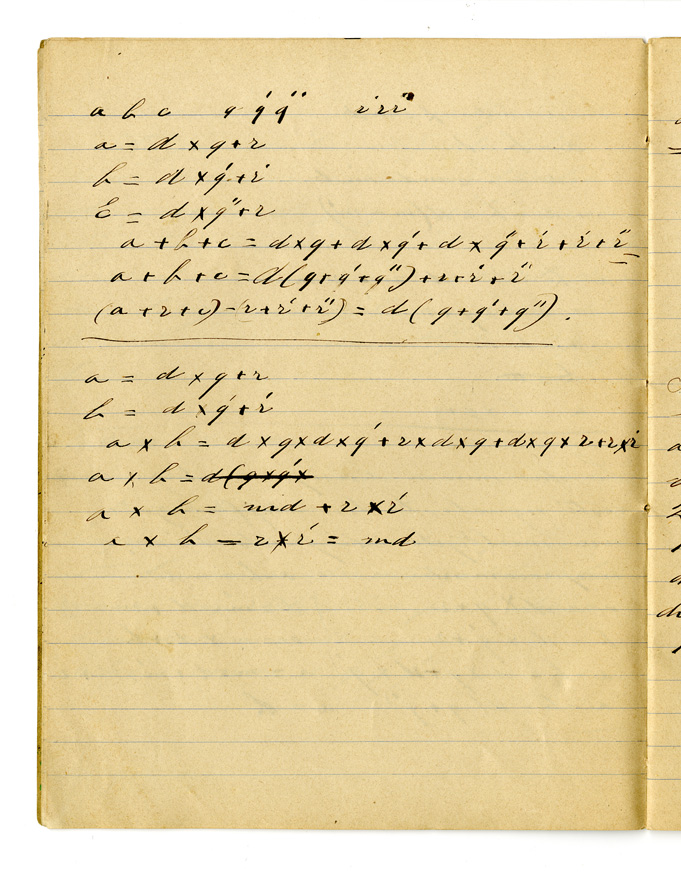 a b c q q' q'' r r' r''
a = d × q + r
b = d × q' + r'
c = d × q'' + r
a + b + c = d×q + d × q' + d × q'' + r + r' + r''
a + b + c = d(q+q'+q'') + r + r' + r''
(a + r + c) - (r + r' + r'') = d ( q + q' + q'' ) .
a = d × q + r
b = d × q' + r'
a × b = d × q × d × q' + r × d × q + d × q × r + r × r'
a × b = d(q×q'×
a × b = md + r × r'
a × b - r × r' = md